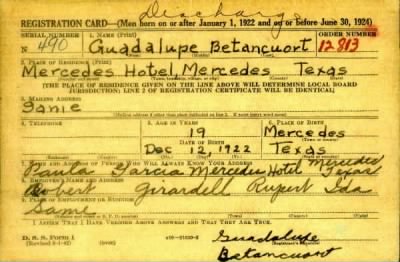 Discharge
REGISTRATION CARD—(Men born on or after January 1, 1922 and on or before June 30, 1924)
SERIAL NUMBER 1. NAME (Print) ORDER NUMBER
N 490 Guadalupe Betancuort 12813
2. PLACE OF RESIDENCE (Print)
Mercedes Hotel Mercedes Texas
(Town, township, village, or city) (County) (State)
[THE PLACE OF RESIDENCE GIVEN ON THE LINE ABOVE WILL DETERMINE LOCAL BOARD
JURISDICTION; LINE 2 OF REGISTRATION CERTIFICATE WILL BE IDENTICAL]
3. MAILING ADDRESS
Same
[Mailing address if other than place indicated on line 2. If same insert word same]
4. TELEPHONE 5. AGE IN YEARS 6. PLACE OF BIRTH
19 Mercedes
DATE OF BIRTH
Dec 12, 1922 Texas
7. NAME AND ADDRESS OF PERSON WHO WILL ALWAYS KNOW YOUR ADDRESS
Paula Garcia Mercedes Hotel Mercedes Texas
8. EMPLOYER'S NAME AND ADDRESS
Robert Girardell Rupert Ida
9. PLACE OF EMPLOYMENT OR BUSINESS
Same
I AFFIRM THAT I HAVE VERIFIED ABOVE ANSWERS AND THAT THEY ARE TRUE.
D. S. S. Form 1
Guadalupe
Betancourt